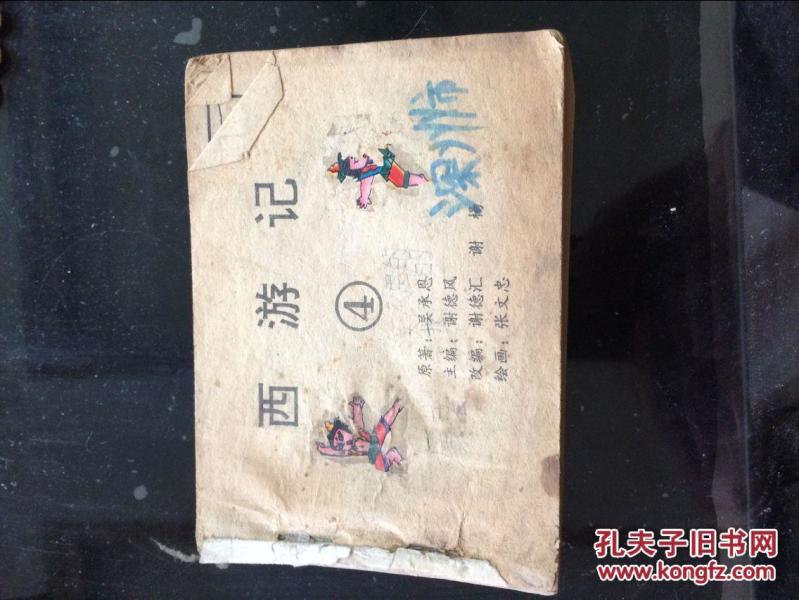 西游记
④
原著：吴承恩
主编：谢德风
改编：谢德汇 谢 杨
绘画：张文忠
孔夫子旧书网
www.kongfz.com